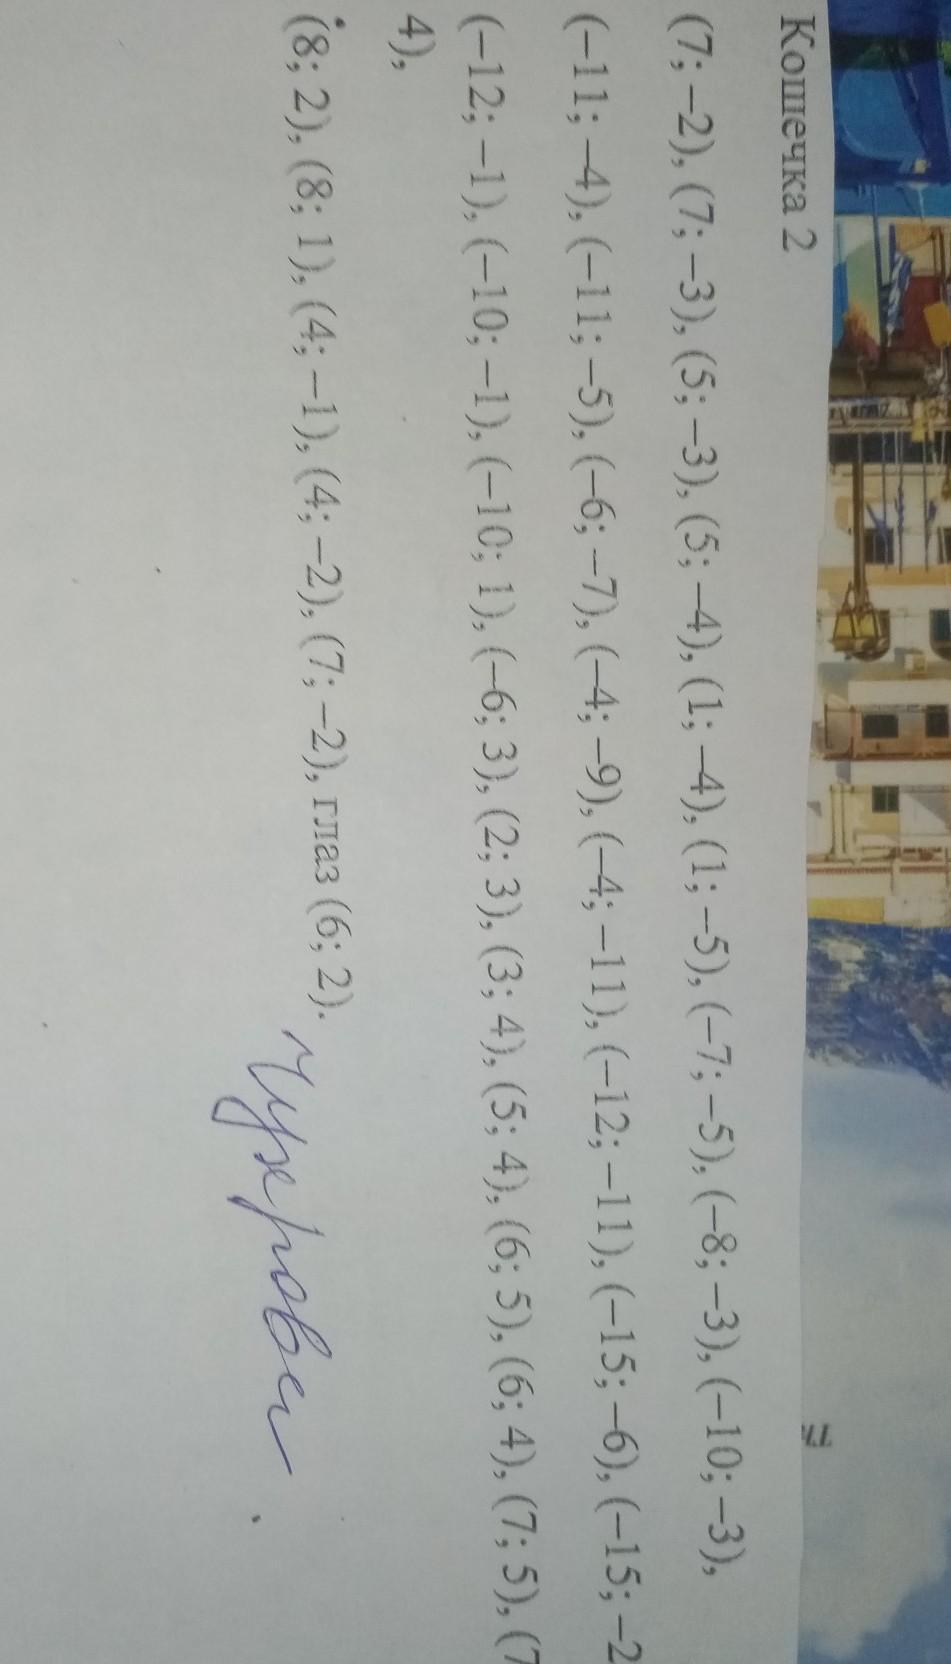 Кошечка 2
(7; –2), (7; –3), (5; –3), (5; –4), (1; –4), (1; –5), (–7; –5), (–8; –3), (–10; –3),
(–11; –4), (–11; –5), (–6; –7), (–4; –9), (–4; –11), (–12; –11), (–15; –6), (–15; –2
(–12; –1), (–10; –1), (–10; 1), (–6; 3), (2; 3), (3; 4), (5; 4), (6; 5), (6; 4), (7; 5), (7
4),
(8; 2), (8; 1), (4; –1), (4; –2), (7; –2), глаз (6; 2).